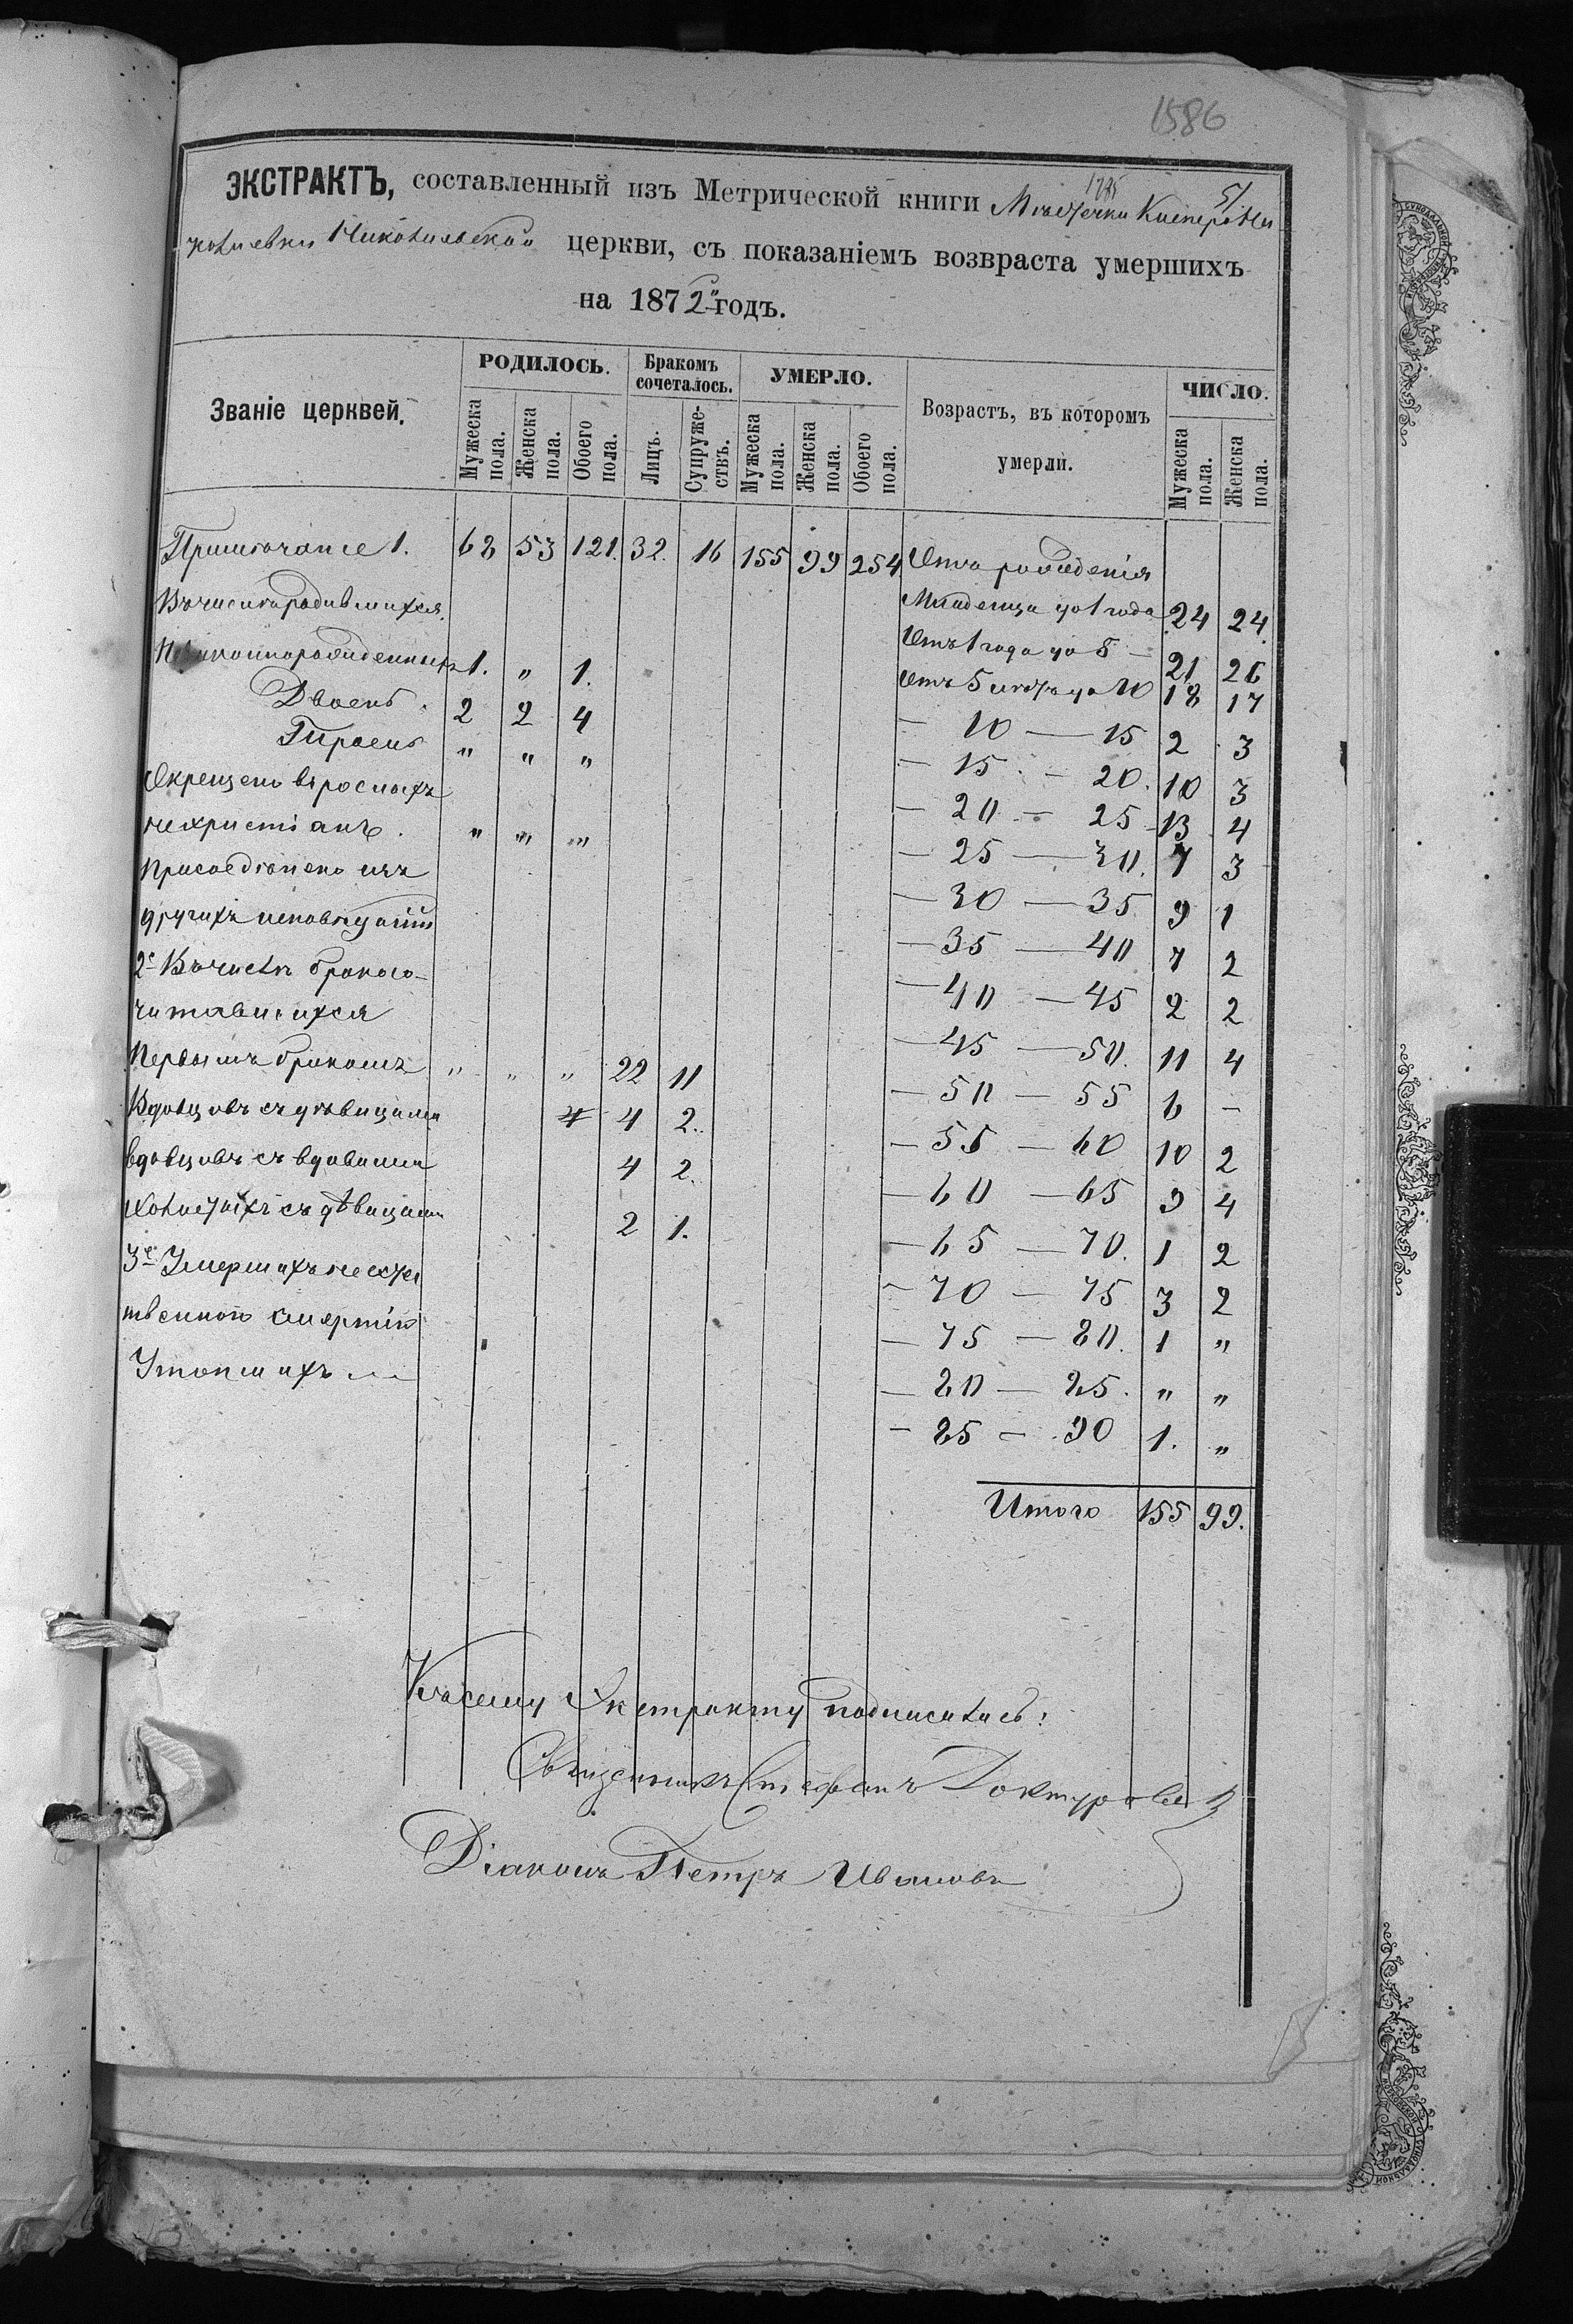 1586
ЭКСТРАКТЪ, составленный изъ Метрической книги Мѣстечка
Николаевской церкви, съ показаніемъ возвраста умершихъ
на 1872й годъ.
Званіе церквей. РОДИЛОСЬ. Бракомъ сочеталось. УМЕРЛО. Возрастъ, въ котором умерли. ЧИСЛО.
Мужеска пола. Женска пола. Обоего пола. Лицъ. Супружествъ. Мужеска пола. Женска пола. Обоего пола. Мужеска пола. Женска пола.
1. 68 53 121. 32. 16 155 99 254 Отъ рожденія
Въ числѣ родившихся Младенца до 1 года 24 24.
Незаконнорожденныхъ 1. " 1. Отъ 1 года до 5 — 21 26
Двоенъ. 2 2 4 Отъ 5 до 10 18 17
Троенъ " " " — 10 — 15 2 3
Окрещено взрослыхъ — 15 — 20. 10 3
нехристіанъ. " " " — 20 — 25 13 4
Присоединено изъ — 25 — 30. 7 3
другихъ исповѣданій — 30 — 35 9 1
2е Въ числѣ бракосо- — 35 — 40 7 2
читавшихся — 40 — 45 2 2
Первымъ бракомъ " " " 22 11 — 45 — 50. 11 4
Вдовцовъ съ дѣвицами 4 2. — 50 — 55 6 —
вдовцовъ съ вдовами 4 2. — 55 — 60 10 2
холостыхъ съ дѣвицами 2 1. — 60 — 65 9 4
3е Умершихъ неесте — 65 — 70. 1 2
ственною смертію — 70 — 75 3 2
Утопшихъ — 75 — 80. 1 "
— 80 — 85. " "
— 85 — 90 1. "
Итого 155 99.
Къ сему Екстракту подписались:
Священникъ Стефанъ
Діаконъ Петръ Ивановъ